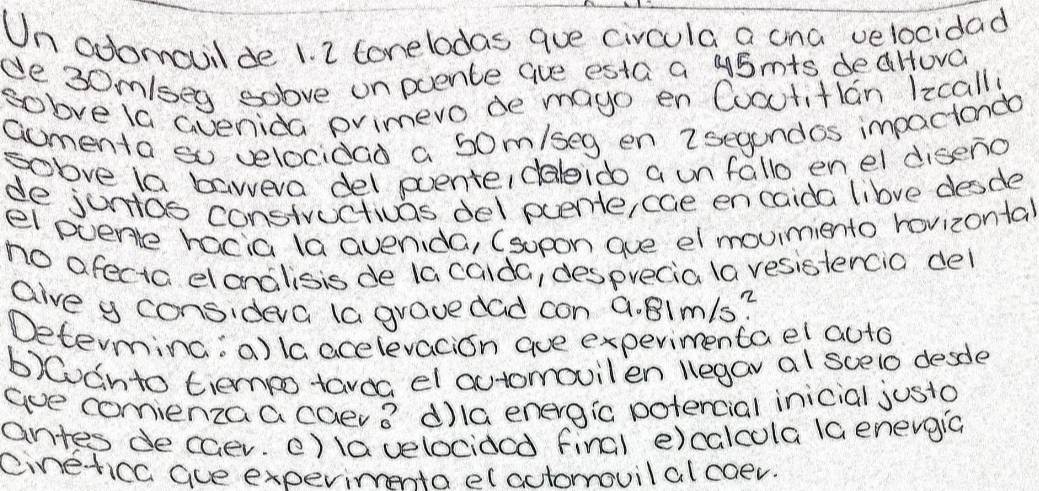 Un automovil de 1.2 toneladas que circula a una velocidad
de 30m/seg sobre un puente que esta a 45mts de altura
sobre la avenida primero de mayo en Cuautitlán Izcalli
aumenta su velocidad a 50m/seg en 2segundos impactando
sobre la barrera del puente, debido a un fallo en el diseño
de juntas constructivas del puente, cae en caida libre desde
el puente hacia la avenida, (supon que el movimiento horizontal
no afecta el análisis de la caida, desprecia la resistencia del
aire y considera la gravedad con 9.81m/s².
Determina: a) la aceleración que experimenta el auto
b) Cuánto tiempo tarda el automovil en llegar al suelo desde
que comienza a caer? d) la energía potencial inicial justo
antes de caer. c) la velocidad final e) calcula la energía
cinética que experimenta el automovil al caer.